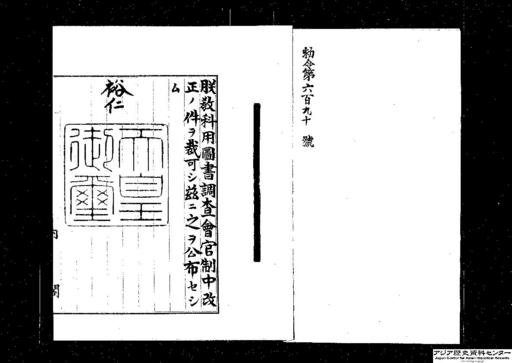 勅令第六百九十號
朕敎科用圖書調查會官制中改
正ノ件ヲ裁可シ茲ニ之ヲ公布セシ
ム
裕仁
天皇
御璽
アジア歴史資料センター
Japan Center for Asian Historical Records